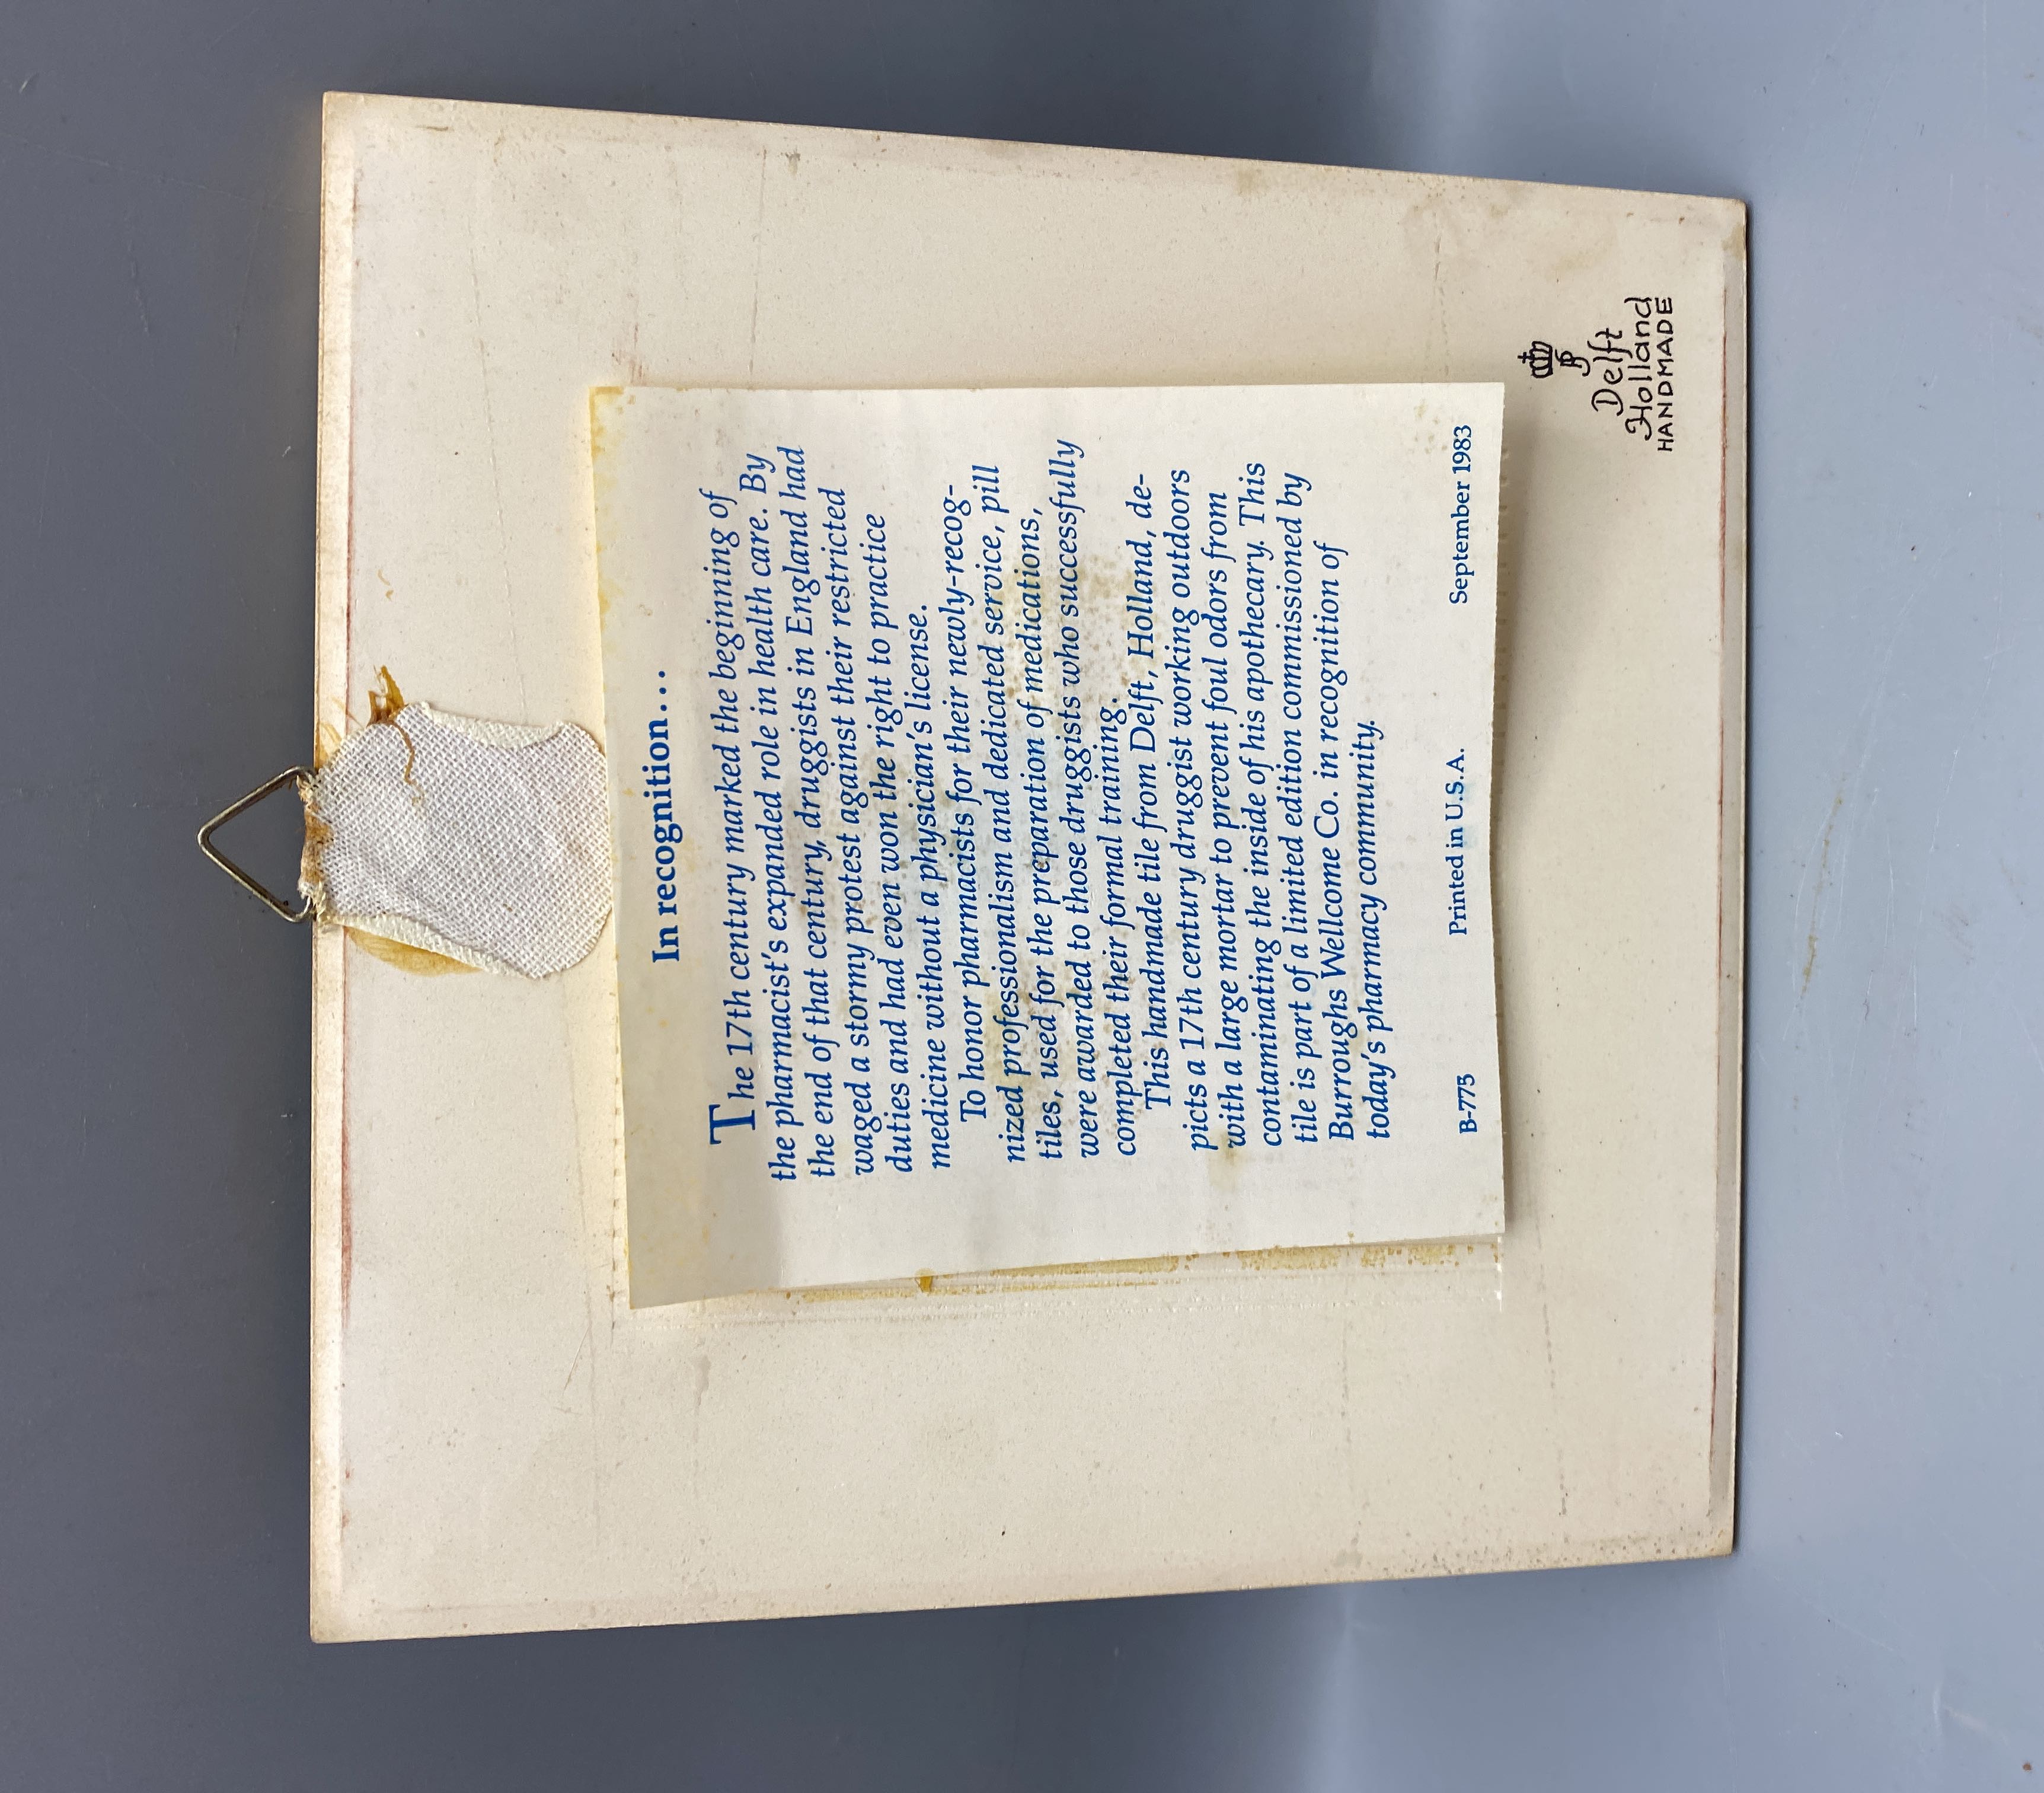 In recognition...
The 17th century marked the beginning of
the pharmacist's expanded role in health care. By
the end of that century, druggists in England had
waged a stormy protest against their restricted
duties and had even won the right to practice
medicine without a physician's license.
To honor pharmacists for their newly-recog-
nized professionalism and dedicated service, pill
tiles, used for the preparation of medications,
were awarded to those druggists who successfully
completed their formal training.
This handmade tile from Delft, Holland, de-
picts a 17th century druggist working outdoors
with a large mortar to prevent foul odors from
contaminating the inside of his apothecary. This
tile is part of a limited edition commissioned by
Burroughs Wellcome Co. in recognition of
today's pharmacy community.
B-775 Printed in U.S.A. September 1983
Delft
Holland
HANDMADE